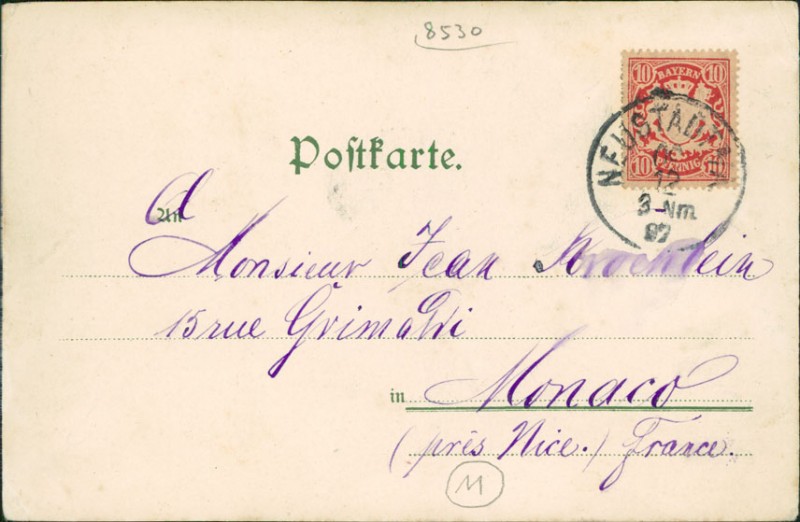 8530
10 BAYERN 10
10 PFENNIG 10
NEUSTADT
12
3-Nm
97
Postkarte.
An
A
Monsieur Jean
15 rue Grimaldi
in Monaco
(près Nice.) France.
M